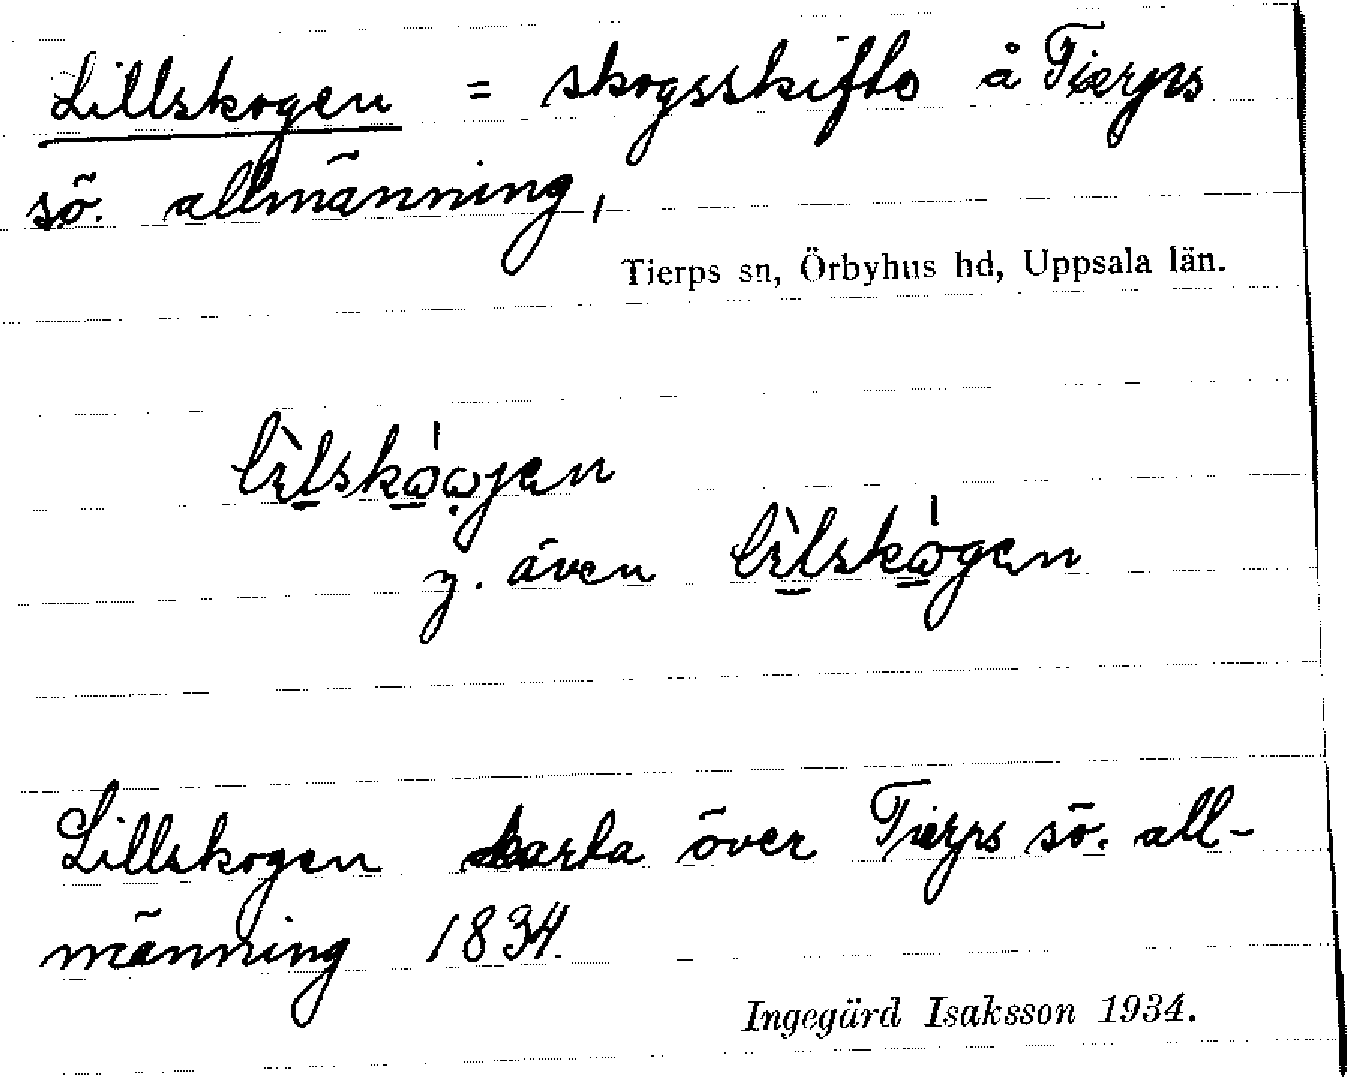 Lillskogen = skogsskifte å Tierps
sö. allmänning,
Tierps sn, Örbyhus hd, Uppsala län.
y. även
Lillskogen karta över Tierps sö. all-
männing 1834.
Ingegärd Isaksson 1934.